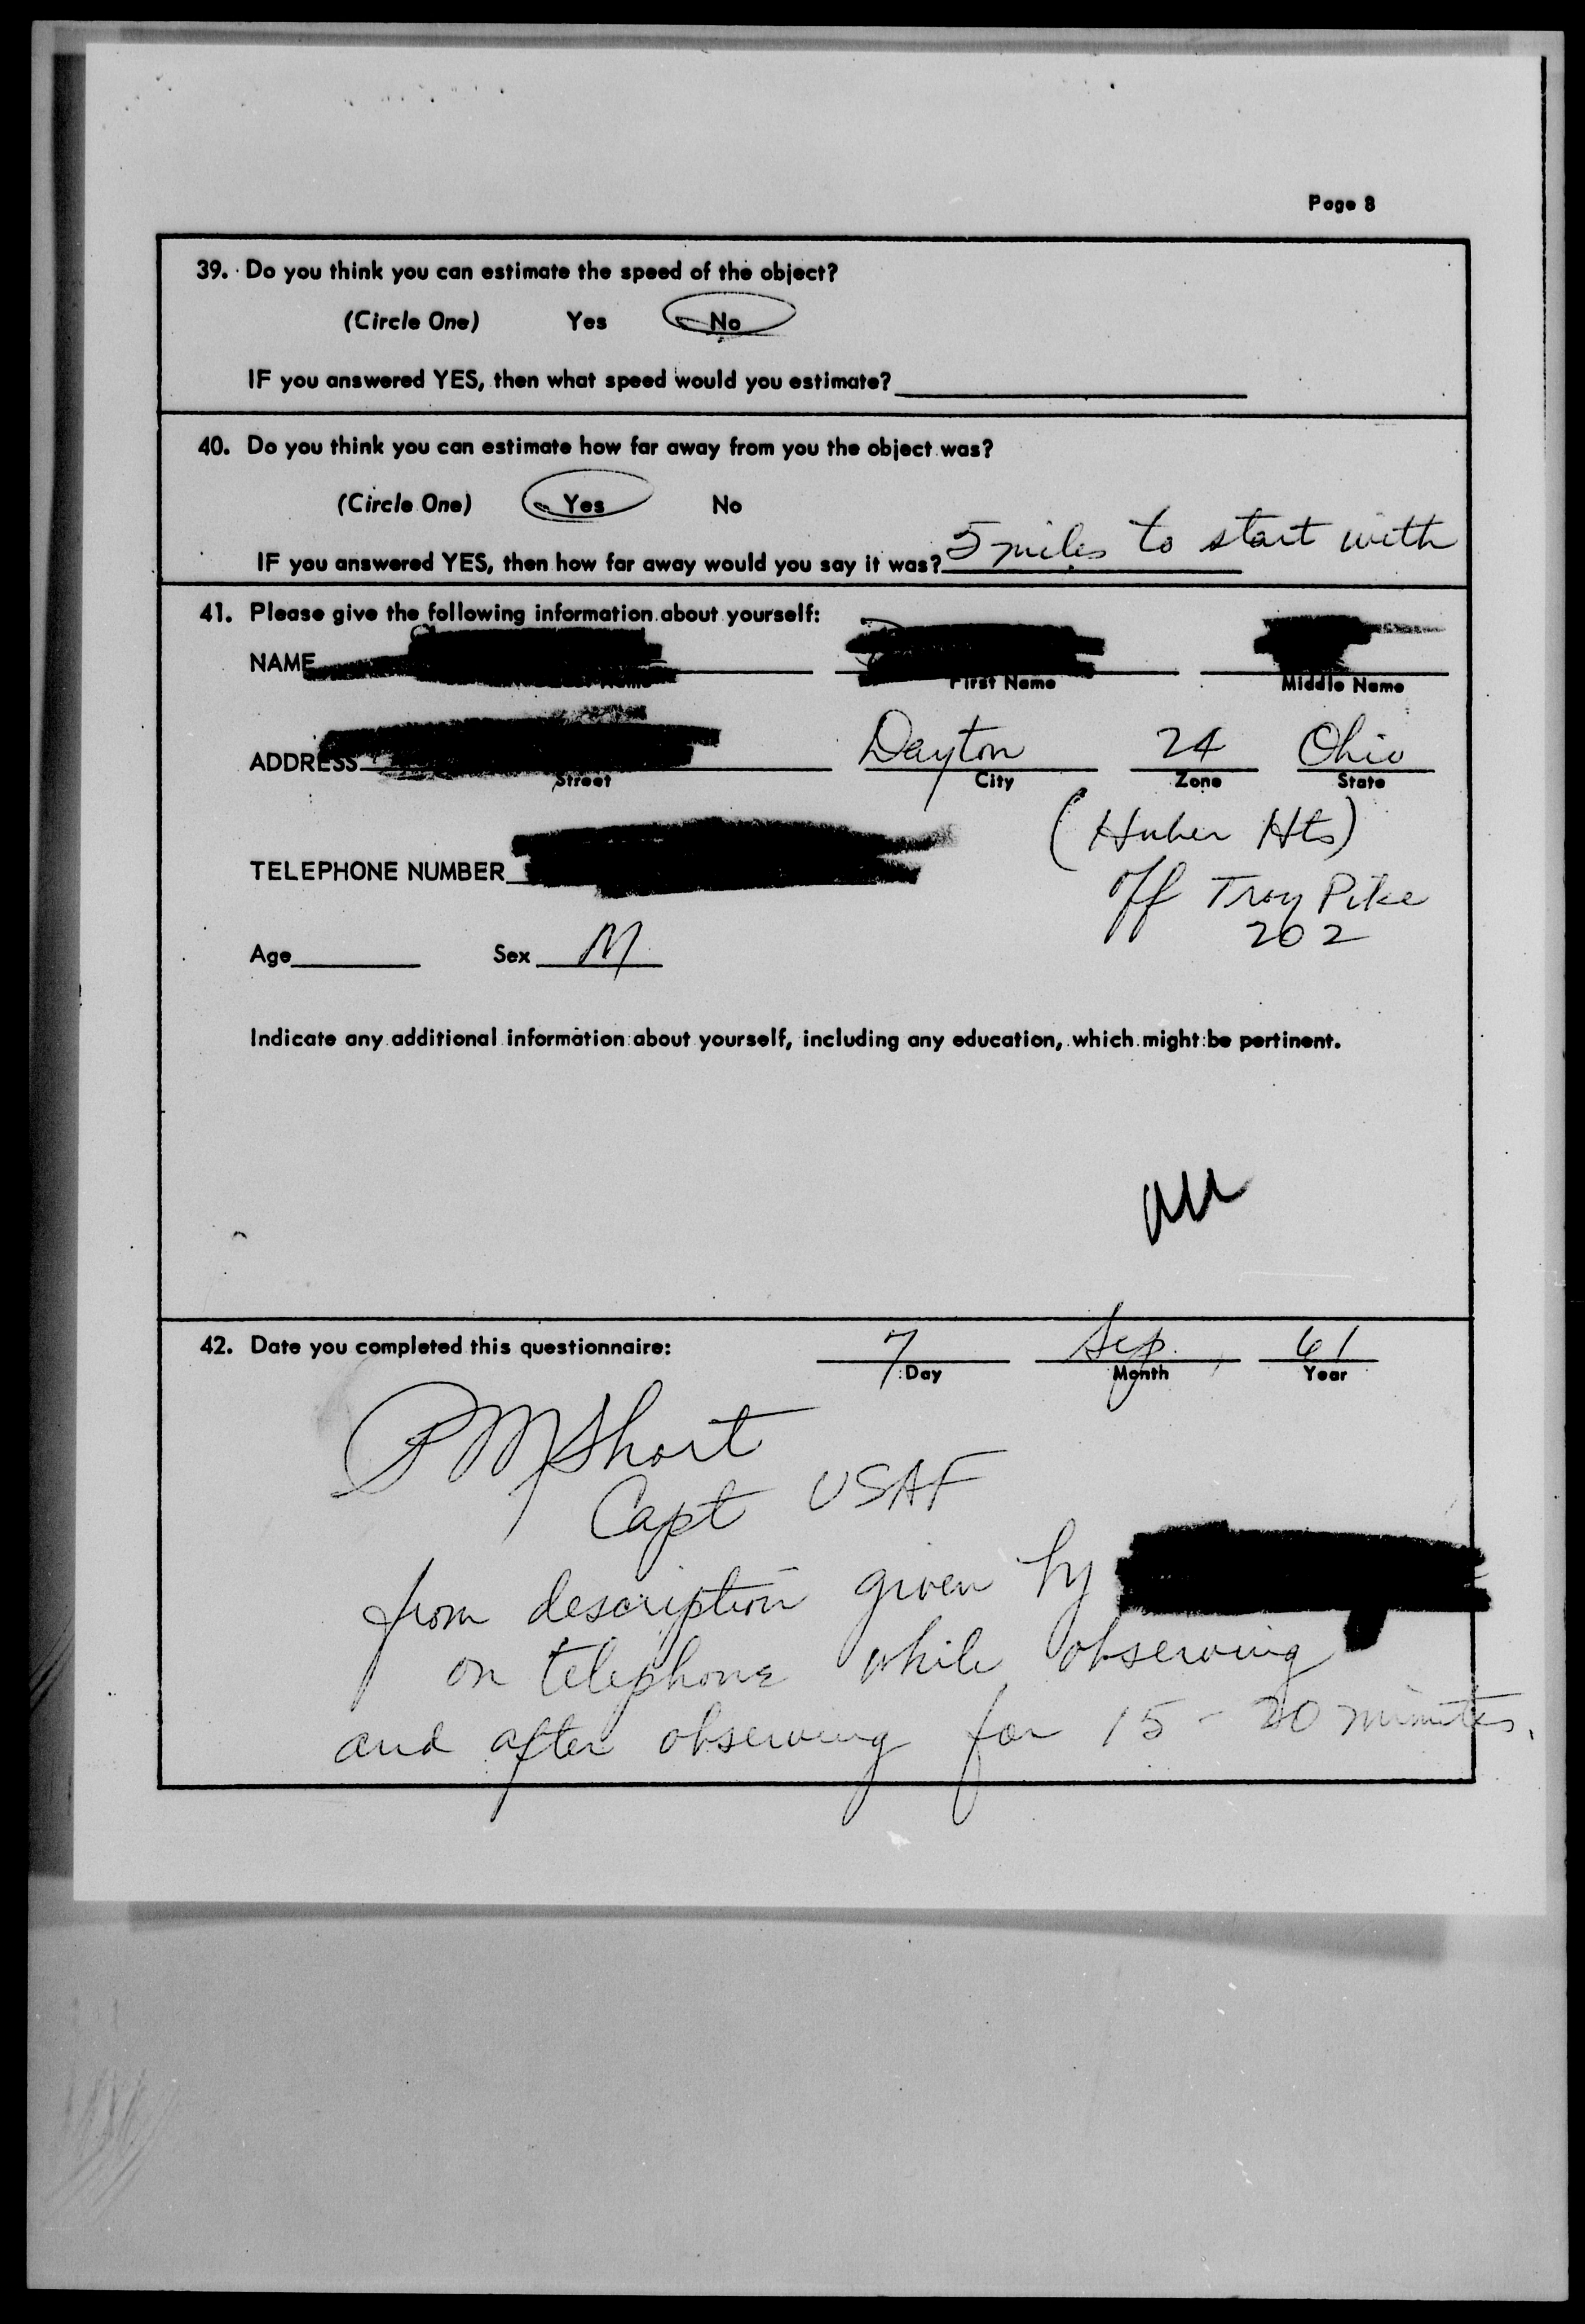 Page 8
39. Do you think you can estimate the speed of the object?
(Circle One) Yes No
IF you answered YES, then what speed would you estimate?
40. Do you think you can estimate how far away from you the object was?
(Circle One) Yes No
IF you answered YES, then how far away would you say it was? 5 miles to start with
41. Please give the following information about yourself:
NAME
First Name Middle Name
ADDRESS Dayton 24 Ohio
Street City Zone State
(Huber Hts)
TELEPHONE NUMBER
off Troy Pike
202
Age Sex M
Indicate any additional information about yourself, including any education, which might be pertinent.
42. Date you completed this questionnaire: 7 Sep 61
Day Month Year
PM Short
Capt USAF
from description given by
on telephone while observing
and after observing for 15 - 20 minutes.